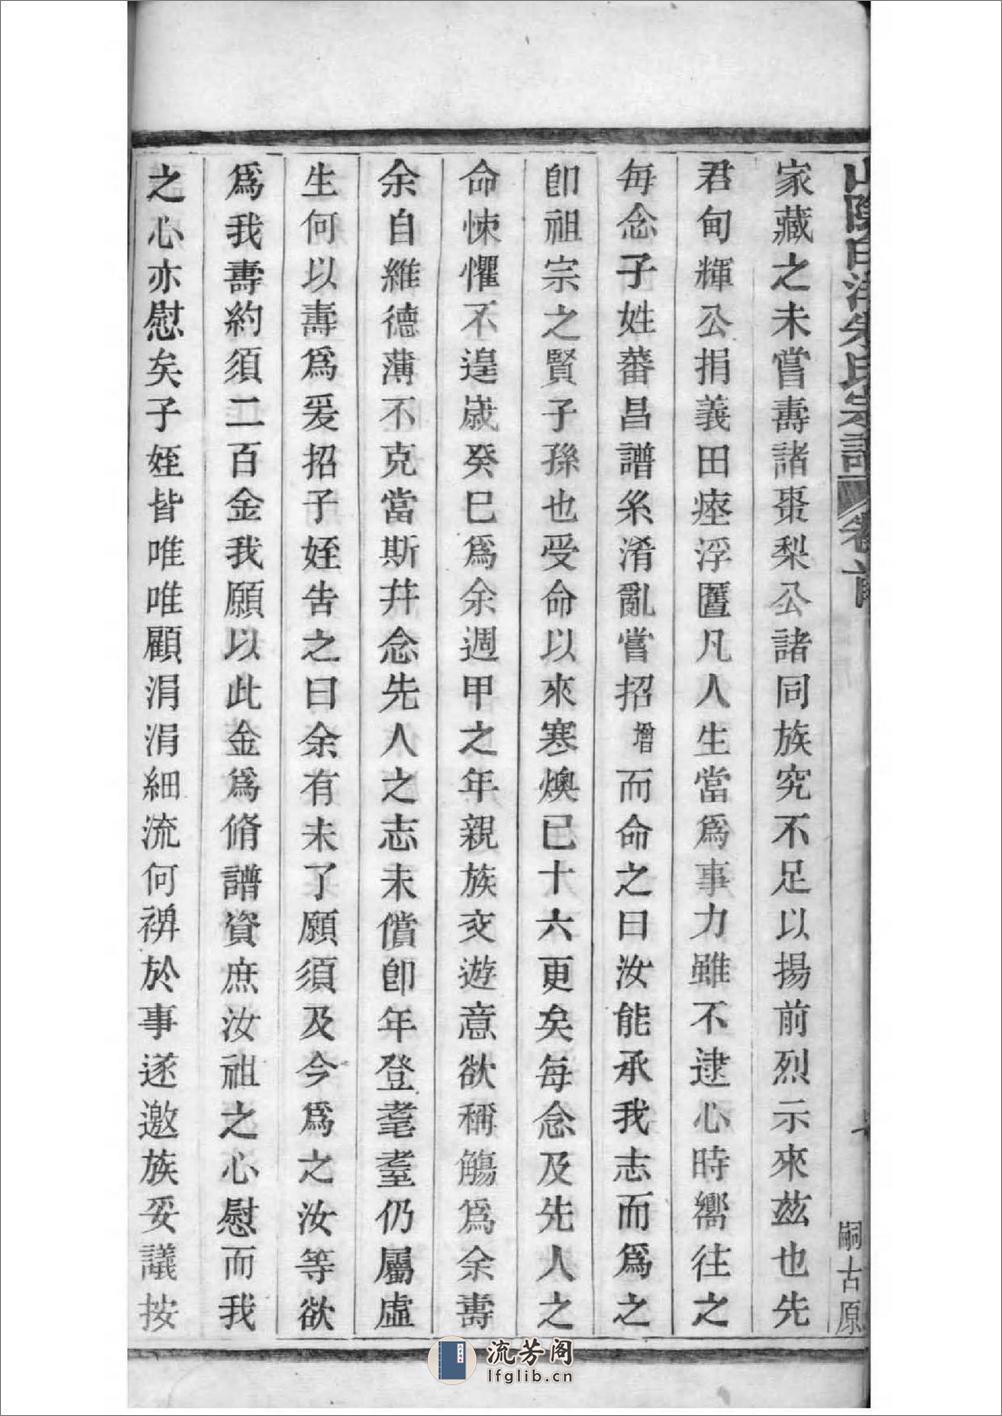 山陰白洋朱氏宗譜 卷首
嗣古原
家藏之未嘗壽諸棗梨公諸同族究不足以揚前烈示來玆也先
君甸輝公捐義田瘞浮匶凡人生當爲事力雖不逮心時嚮往之
每念子姓蕃昌譜系淆亂嘗招增而命之曰汝能承我志而爲之
卽祖宗之賢子孫也受命以來寒燠已十六更矣每念及先人之
命悚懼不遑歲癸巳爲余週甲之年親族交遊意欲稱觴爲余壽
余自維德薄不克當斯幷念先人之志未償卽年登耄耋仍屬虛
生何以壽爲爰招子姪告之曰余有未了願須及今爲之汝等欲
爲我壽約須二百金我願以此金爲脩譜資庶汝祖之心慰而我
之心亦慰矣子姪皆唯唯顧涓涓細流何裨於事遂邀族妥議按
流芳阁
lfglib.cn